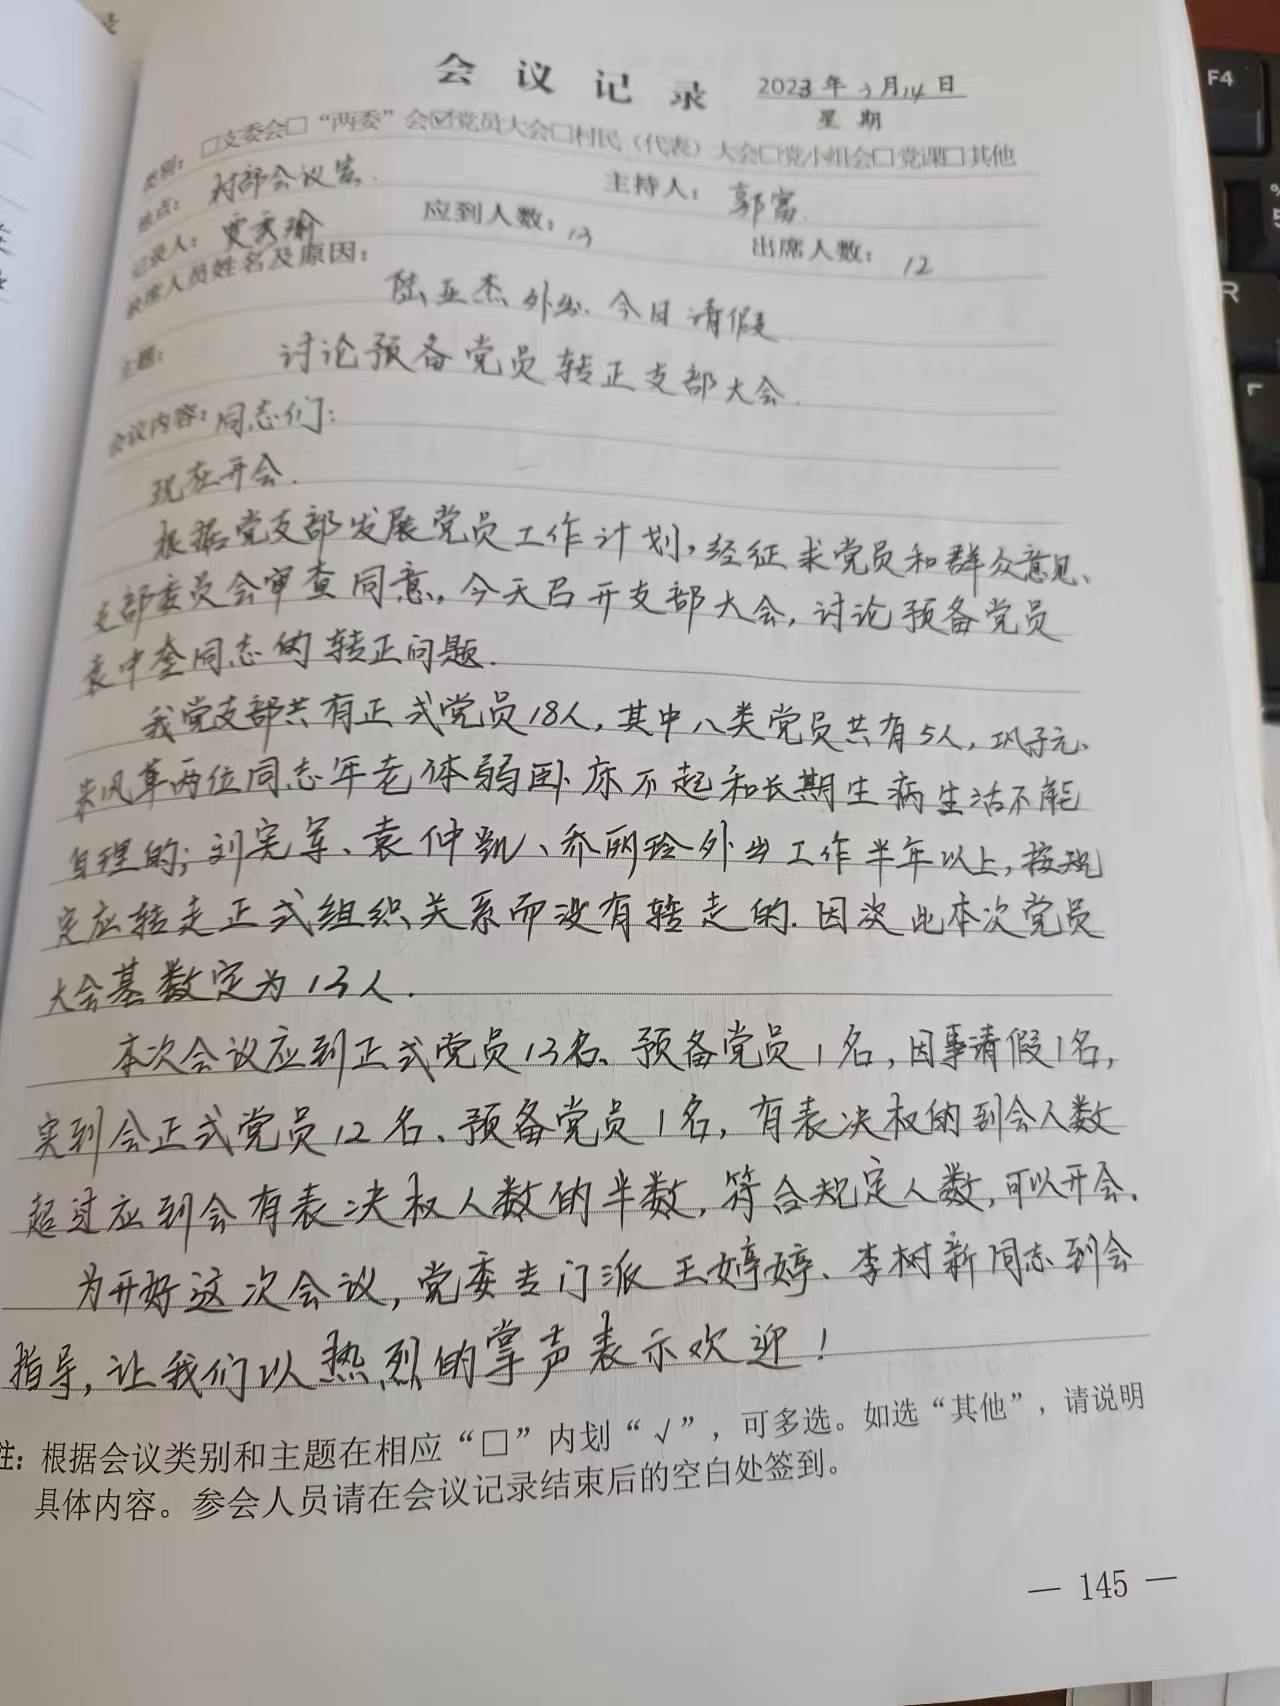 会议记录
2023年3月14日
星期
类别：□支委会□“两委”会☑党员大会□村民（代表）大会□党小组会□党课□其他
地点：村部会议室. 主持人：郭富
记录人： 应到人数：13 出席人数：12
缺席人员姓名及原因：陆亚杰外出.今日请假
主题：讨论预备党员转正支部大会.
会议内容：同志们：
现在开会.
根据党支部发展党员工作计划,经征求党员和群众意见、
支部委员会审查同意,今天召开支部大会,讨论预备党员
袁中奎同志的转正问题.
我党支部共有正式党员18人,其中八类党员共有5人,巩子元、
朱凤草两位同志年老体弱卧床不起和长期生病生活不能
自理的;刘宪军、袁仲凯、乔丽玲外出工作半年以上,按规
定应转走正式组织关系而没有转走的.因次此本次党员
大会基数定为13人.
本次会议应到正式党员13名、预备党员1名,因事请假1名,
实到会正式党员12名、预备党员1名,有表决权的到会人数
超过应到会有表决权人数的半数,符合规定人数,可以开会.
为开好这次会议,党委专门派王婷婷、李树新同志到会
指导,让我们以热烈的掌声表示欢迎!
注：根据会议类别和主题在相应“□”内划“√”，可多选。如选“其他”，请说明
具体内容。参会人员请在会议记录结束后的空白处签到。
— 145 —
F4
%
5
R